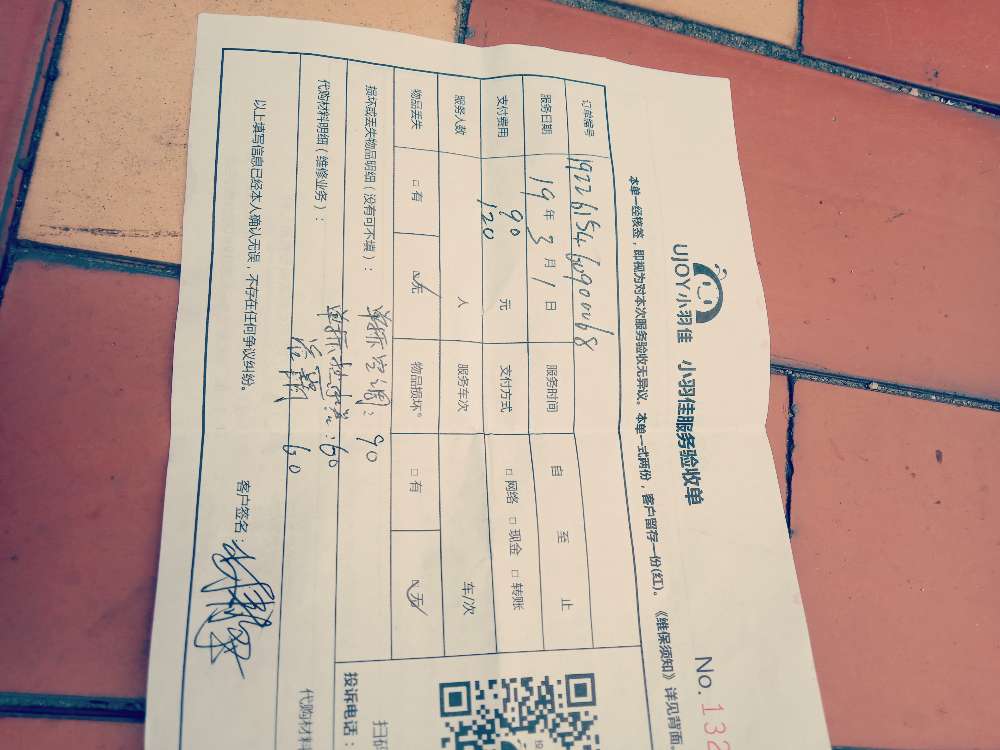 UJOY小羽佳 小羽佳服务验收单
No. 132
本单一经核签，即视为对本次服务验收无异议。本单一式两份，客户留存一份(红)。《维保须知》详见背面。
订单编号
服务日期 19 年 3 月 1 日 服务时间 自 至 止
支付费用 90 120 元 支付方式 □ 网络 □ 现金 □ 转账
服务人数 人 服务车次 车/次
物品丢失 □ 有 □ 无 物品损坏 □ 有 □ 无
损坏或丢失物品明细（没有可不填）：
单拆空调：90
代购材料明细（维修业务）：
60
60
以上填写信息已经本人确认无误，不存在任何争议纠纷。
客户签名：
投诉电话：
扫码
代购材料